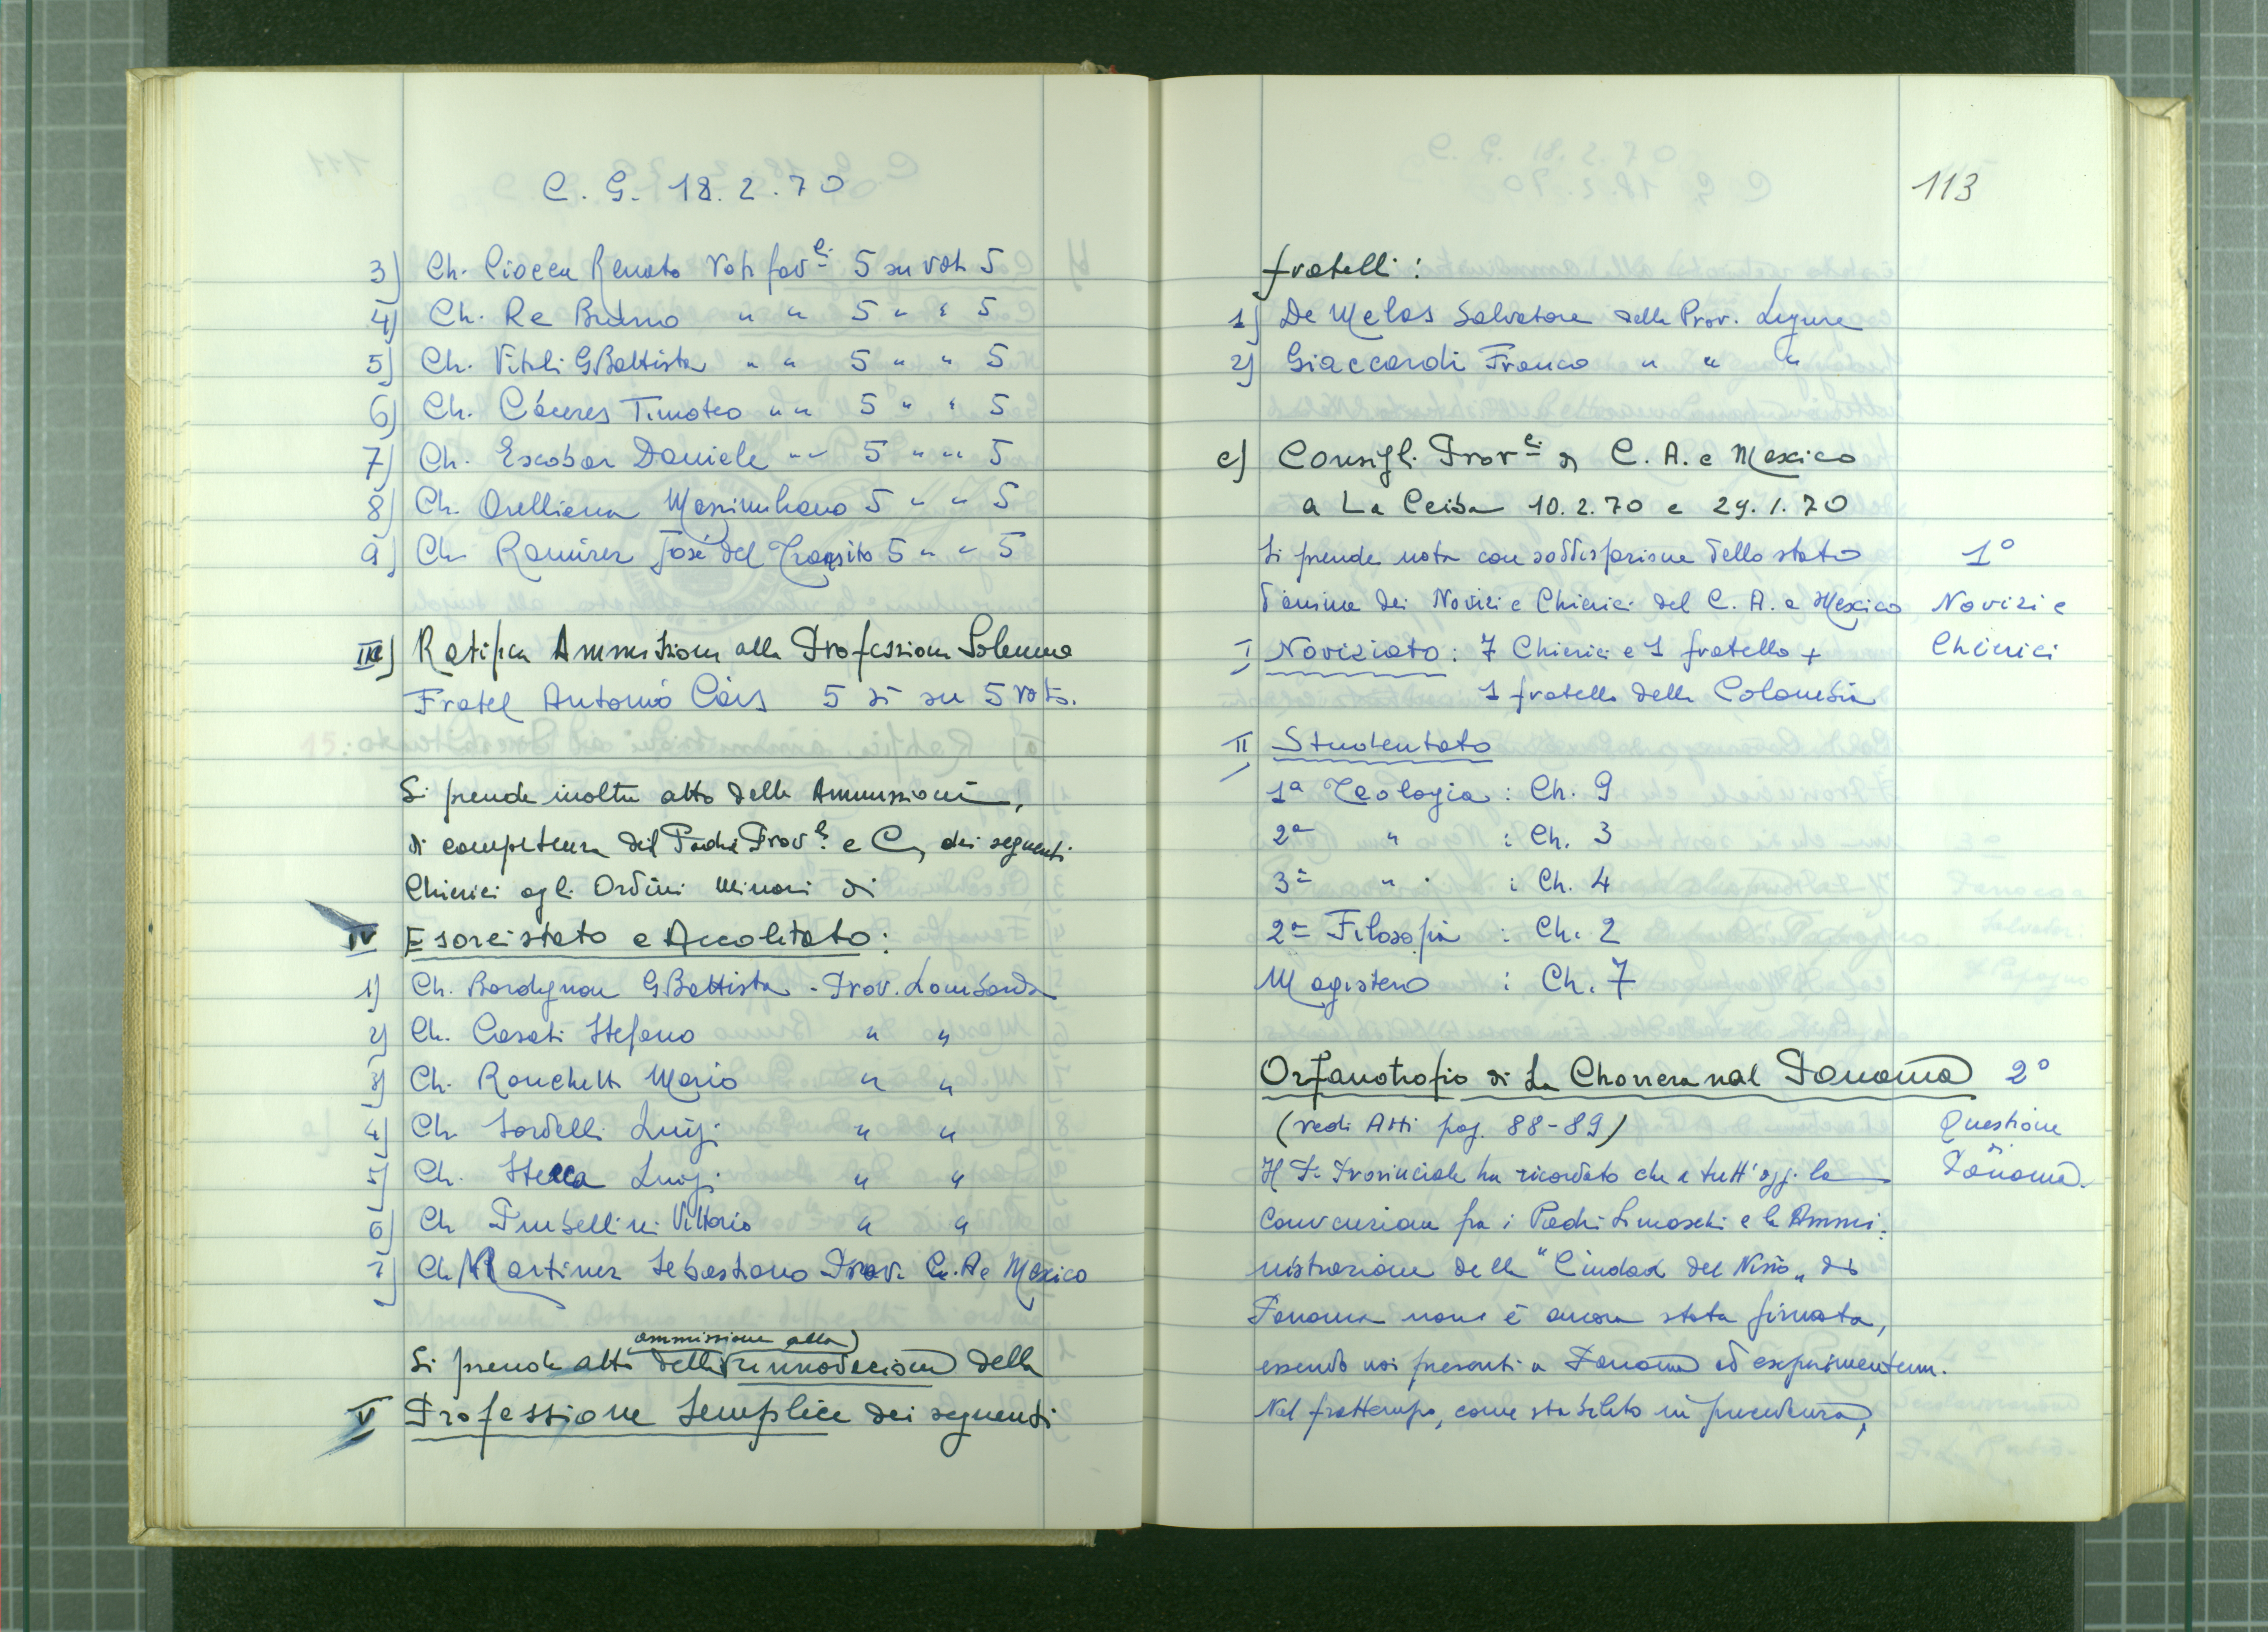 C. G. 18.2.70
3) Ch. Ciocca Renato Voti fav.li 5 su voti 5
4) Ch. Re Bruno " " 5 " " 5
5) Ch. Vitali GBattista " " 5 " " 5
6) Ch. Cáceres Timoteo " " 5 " " 5
7) Ch. Escobar Daniele " " 5 " " 5
8) Ch. Orelliana Massimiliano 5 " " 5
9) Ch Ramirez José del Transito 5 " " 5
III) Ratifica Ammissione alla Professione Solenne
Fratel Antonio 5 sì su 5 voti.
Si prende inoltre atto delle Ammissioni,
di competenza del Padre Prov.le e C, dei seguenti
Chierici agli Ordini Minori di
IV Esorcistato e Accolitato:
1) Ch. Bordignon GBattista - Prov. Lombarda
2) Ch. Casati Stefano " "
3) Ch. Ronchetti Mario " "
4) Ch. Sordelli Luigi " "
5) Ch. Stecca Luigi " "
6) Ch Trubellini Vittorio " "
7) Ch Martinez Sebastiano Prov. C. A e Mexico
ammissione alla
Si prende atto della rinnovazione della
V Professione Semplice dei seguenti
113
fratelli:
1) De Melas Salvatore della Prov. Ligure
2) Giaccardi Franco " " "
c) Consigli Prov.li di C. A. e Mexico
a La Ceiba 10.2.70 e 29.1.70
Si prende nota con soddisfazione dello stato 1°
d'anime dei Novizi e Chierici del C. A. e Mexico Novizi e
I Noviziato: 7 Chierici e 1 fratello + Chierici
1 fratello della Colombia
II Studentato
1ª Teologia : Ch. 9
2ª " : Ch. 3
3ª " : Ch. 4
2ª Filosofia : Ch. 2
Magistero : Ch. 7
Orfanotrofio di La Chorrera nel Panama 2°
(vedi Atti pag. 88-89) Questione
Il P. Provinciale ha ricordato che a tutt'oggi la Panama.
Convenzione fra i Padri Somaschi e la Ammi-
nistrazione della "Ciudad del Niño" di
Panama non è ancora stata firmata,
essendo noi presenti a Panama ad experimentum.
Nel frattempo, come stabilito in precedenza,